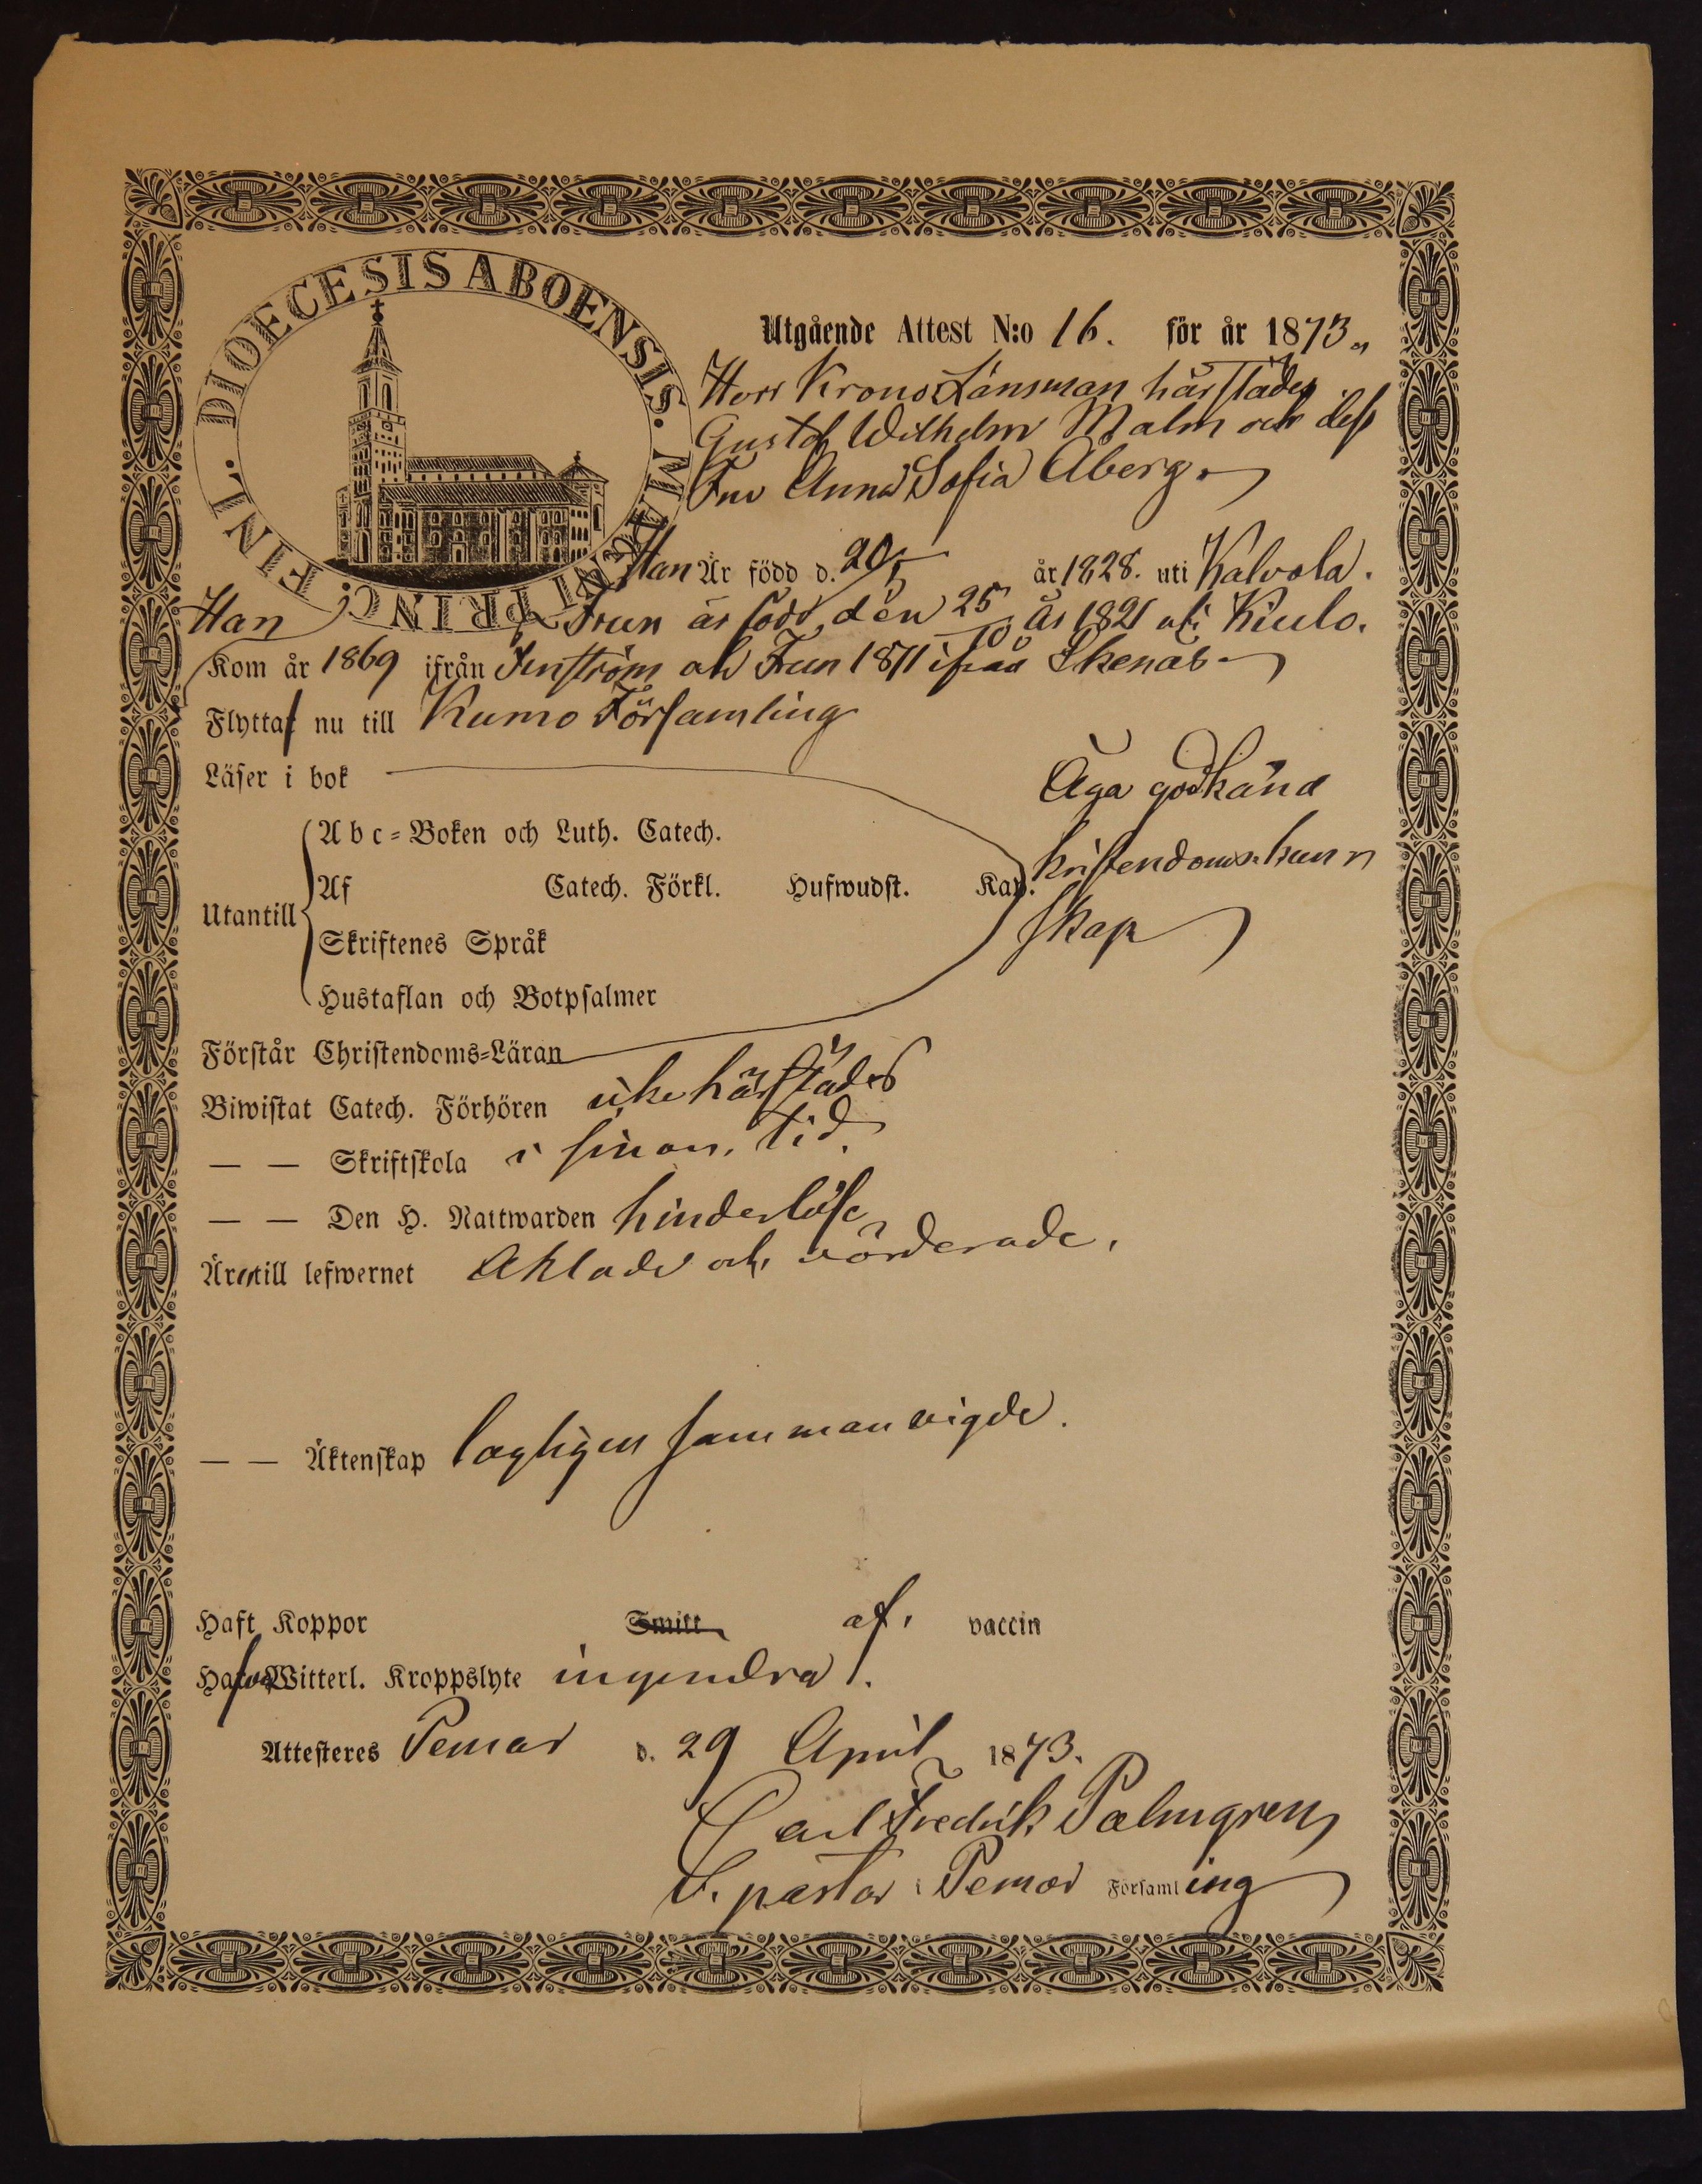 DIOECESIS ABOENSIS. MAGNI PRINC: FINL.
Utgående Attest N:o 16. för år 1873.
Herr Krono Länsman härstädes
Gustaf Wilhelm Malm och dess
Fru Anna Sofia Åberg.
Han Är född d. 20/5 år 1828. uti Kalvola.
Frun är född den 25/10 år 1821 uti Kiulo.
Han
Kom år 1869 ifrån Finström och Frun 1871 ifrån Ekenäs
Flytta nu till Kumo Församling
Läser i bok
Äga godkänd
Abc-Boken och Luth. Catech.
kristendoms kunn
Utantill
Af Catech. Förkl. Hufwudst. Kap.
skap
Skriftenes Språk
Hustaflan och Botpsalmer
Förstår Christendoms-Läran
Biwistat Catech. Förhören icke härstädes
— — Skriftskola i sinom tid.
— — Den H. Nattwarden hinderlöse
Äro till lefwernet aktade och värderade.
— — Äktenskap lagligen sammanvigde.
Haft Koppor Smitt af. vaccin
Hafva Witterl. Kroppslyte ingendra.
Attesteres Pemar d. 29 April 1873.
Carl Fredrik Palmgren
V. pastor i Pemar Församling